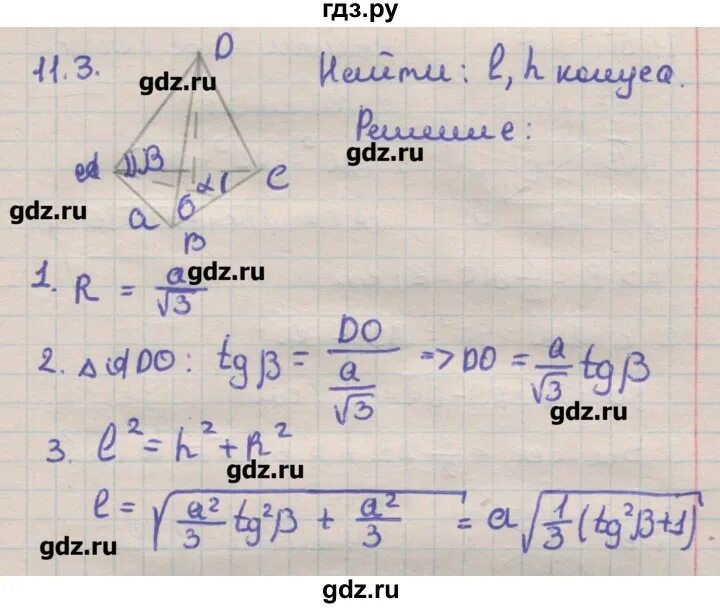 гдз.ру
11.3.
D
gdz.ru
Найти: l, h конуса.
Решение:
gdz.ru
A β C
α
gdz.ru
a O
B
1. R = a/√3
gdz.ru
2. △ADO: tg β = DO/(a/√3) => DO = a/√3 tg β
gdz.ru
3. l² = h² + R²
gdz.ru
l = √(a²/3 tg²β + a²/3) = a√(1/3 (tg²β+1))
gdz.ru
gdz.ru